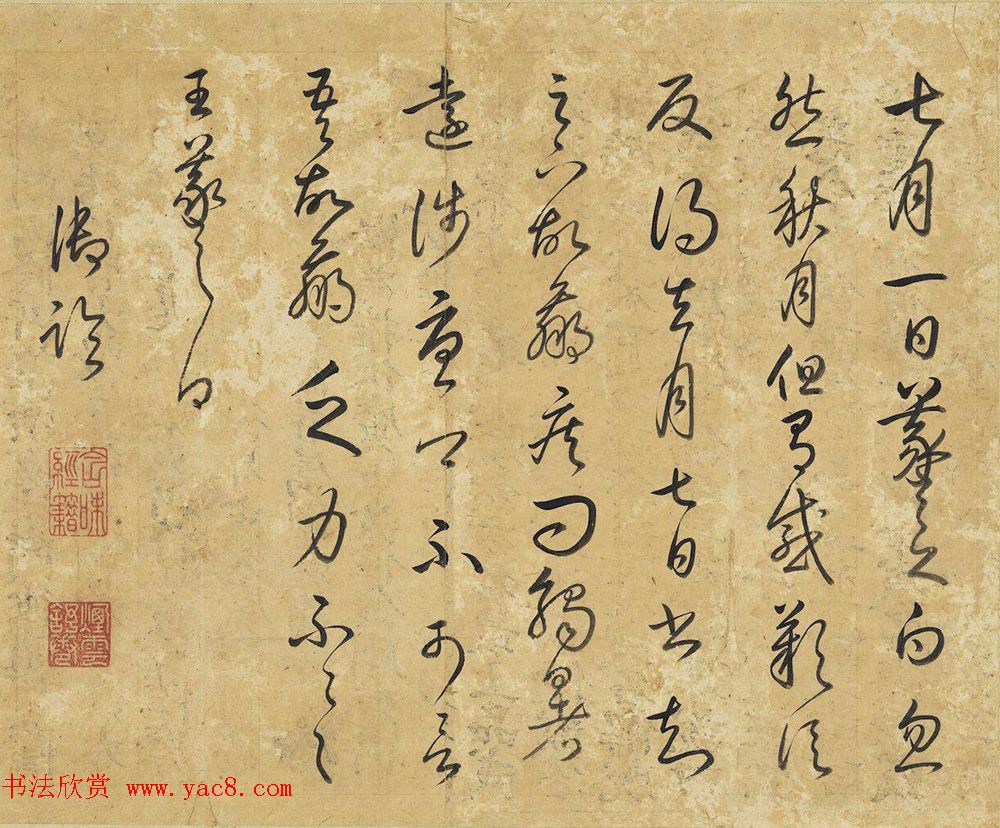 七月一日羲之白忽
然秋月但有感歎信
反得去月七日書知
足下故羸疾問觸暑
遠涉憂卿不可言
吾故羸乏力不一一
王羲之白
御臨
含味經籍
煙雲舒卷
书法欣赏 www.yac8.com